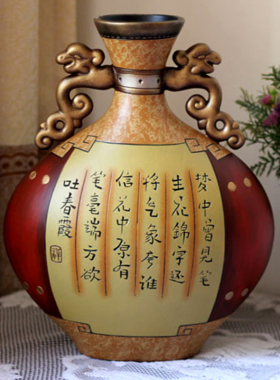 梦中曾見笔
生花錦字还
将气象夸谁
信花中原有
笔毫端方欲
吐春霞